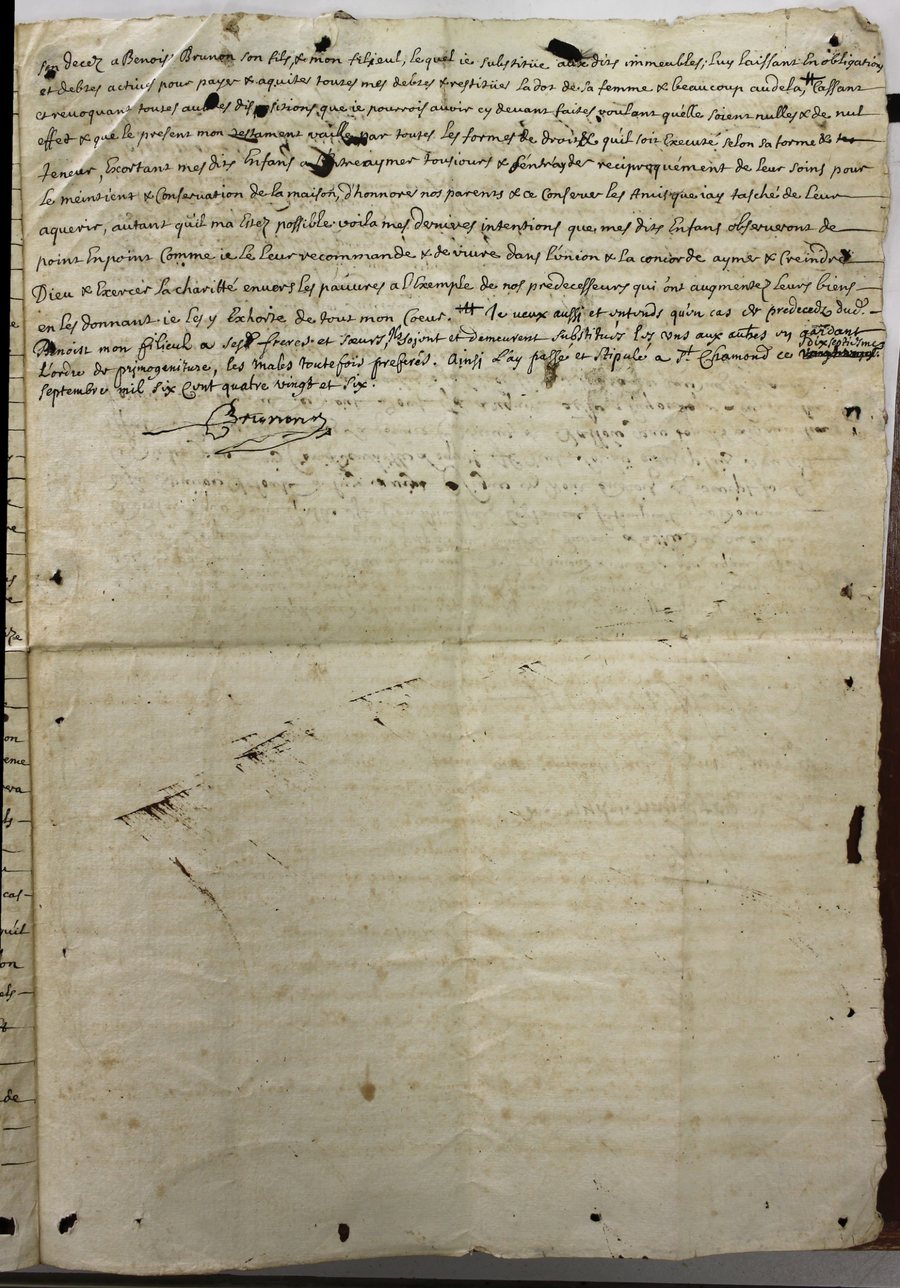 son decez a Benoist Brunon son fils, & mon filieul, lequel ie substitüe aux dits immeubles, luy laissant En obligations
et debtes actives pour payer & aquiter toutes mes debtes & restitüer la dot de sa femme & beaucoup audela, # Cassant
et revoquant toutes autres dispositions que ie pourrois avoir cy devant faites voulant qu'elle soient nulles & de nul
effet & que le present mon testament vaille par toutes les formes de droit & qu'il soit Executé selon sa forme &
teneur, Exortant mes dits Enfans a s'entreaymer tousiours & s'entrayder reciproquément de leur soins pour
le meintient & Conservation de la maison, d'honnorer nos parents & ce Conserver les Amis que iay tasché de leur
aquerir, autant qu'il ma Estez possible voila mes dernieres intentions que mes dits Enfans observeront de
point Enpoint Comme ie le leur recommande & de vivre dans l'union & la concorde aymer & Creindre
Dieu & Exercer la charitté envers les pauvres a l'Exemple de nos predecesseurs qui ont augmentez leurs biens
en les donnant ie les y Exhorte de tout mon Coeur. # Je veux aussi et entends qu'en cas de predecedz dud.
Benoist mon filieul a ses freres et soeurs, ils soient et demeurent substitués les uns aux autres en gardant
L'ordre de primogeniture, les males toutefois preferés. Ainsi L'ay passé et stipulé a St. Chamond ce dixseptiesme
septembre mil six Cent quatre vingt et six.
Brunon
on
ence
cas
de